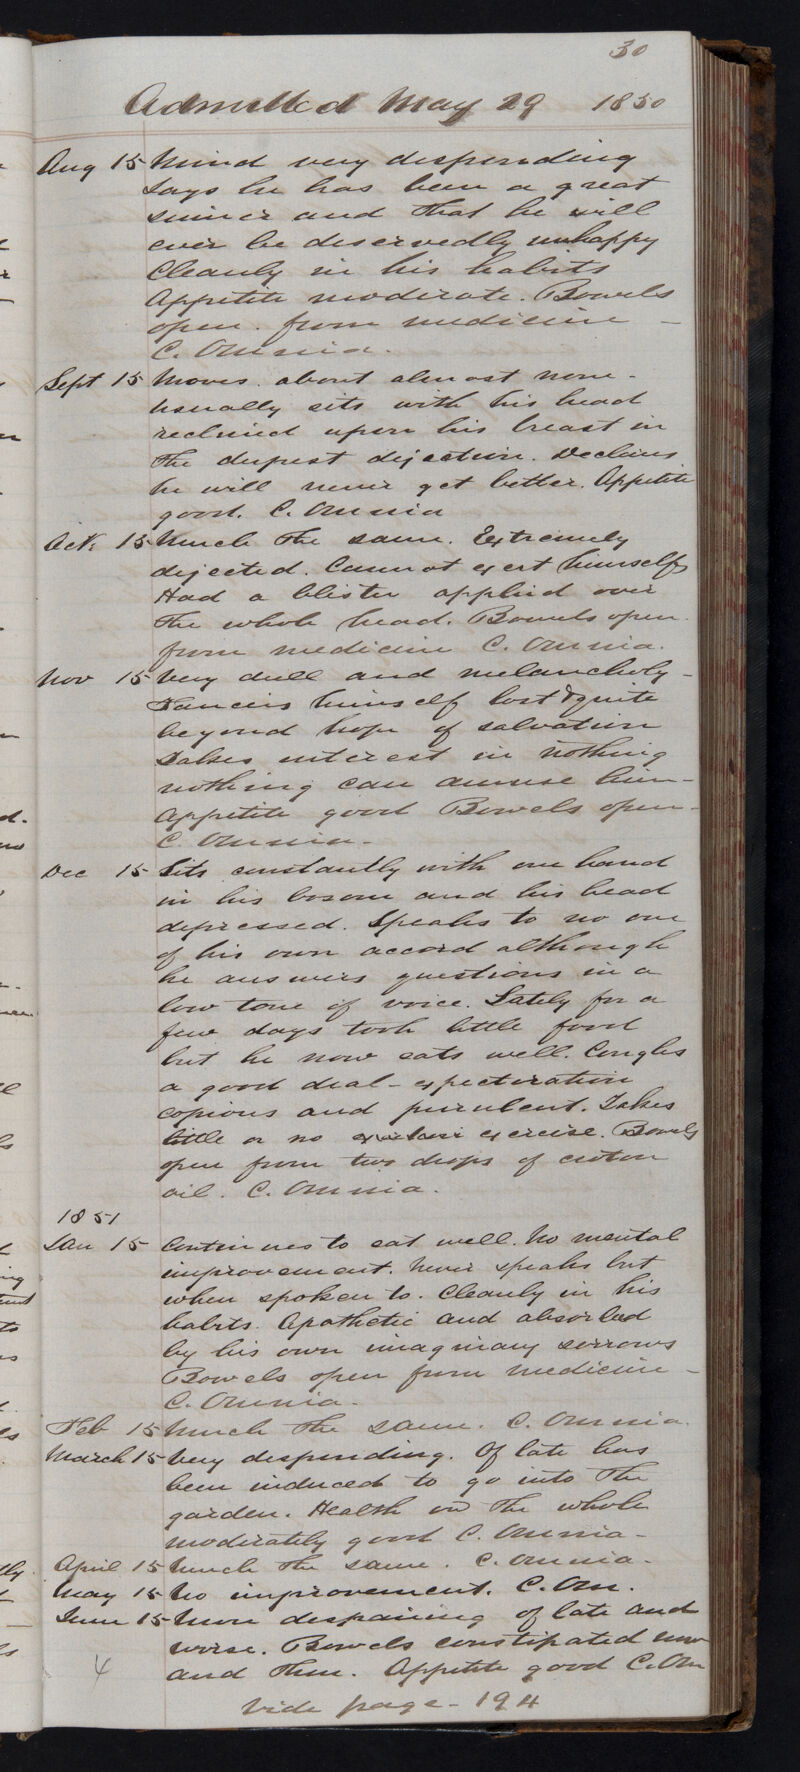 30
Admitted May 29 1850
Aug 15 Mind very desponding
says he has been a great
sinner and that he will
ever be deservedly unhappy
Cleanly in his habits
Appetite moderate. Bowels
open. from medicine —
C. Omnia.
Sept 15 Moves. about almost none.
usually sits with his head
reclined upon his breast in
the deepest dejection. Declares
he will never get better. Appetite
good. C. Omnia
Oct. 15 Much the same. Extremely
dejected. Cannot exert himself
Had a blister applied over
the whole head. Bowels open.
from medicine C. Omnia.
Nov 15 Very dull and melancholy –
Fancies himself lost & quite
beyond hope of salvation
Takes interest in nothing
nothing can amuse him –
Appetite good Bowels open –
C Omnia. –
Dec 15 Sits constantly with one hand
in his bosom and his head
depressed. Speaks to no one
of his own accord although
he answers questions in a
low tone of voice. Lately for a
few days took little food
but he now eats well. Coughs
a good deal – expectoration
copious and purulent. Takes
little or no exercise. Bowels
open from two drops of croton
oil. C. Omnia.
1851
Jan 15 Continues to eat well. No mental
improvement. Never speaks but
when spoken to. Cleanly in his
habits. Apathetic and absorbed
by his own imaginary sorrows
Bowels open from medicine –
C. Omnia.
Feb 15 Much the same. C. Omnia.
March 15 Very desponding. Of late has
been induced to go into the
garden. Health on the whole
moderately good C. Omnia –
April 15 Much the same. C. Omnia.
May 15 No improvement. C. Om.
June 15 More despairing of late and
worse. Bowels constipated now
and then. Appetite good C. Om
4
Vide page – 194